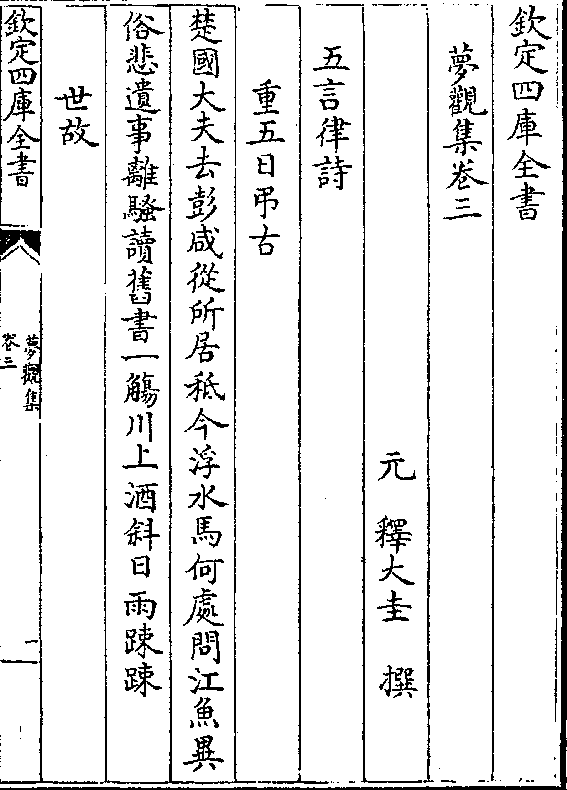 欽定四庫全書
夢觀集卷三
元 釋大圭 撰
五言律詩
重五日弔古
楚國大夫去彭咸從所居秪今浮水馬何處問江魚異
俗悲遺事離騷讀舊書一觴川上酒斜日雨踈踈
世故
欽定四庫全書
夢觀集
卷三
一